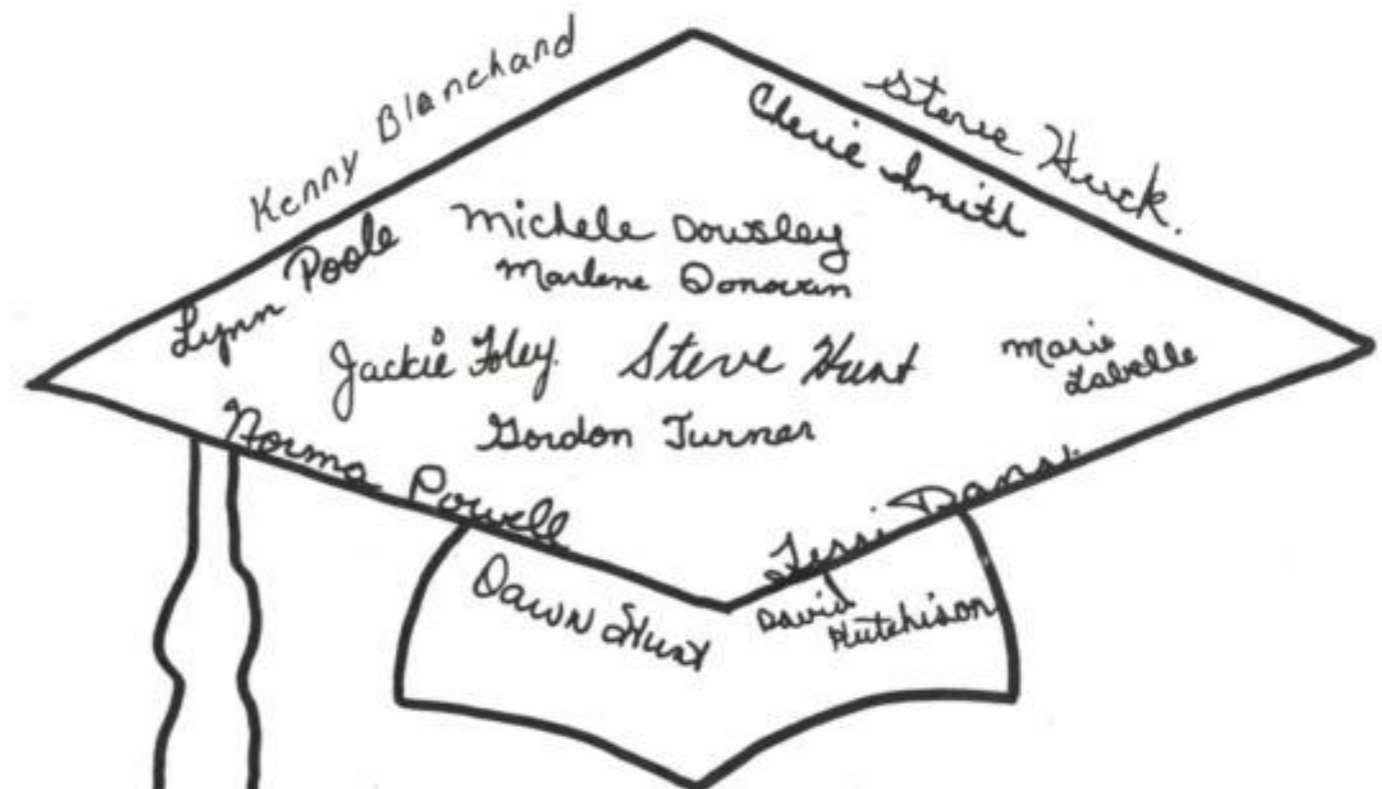 Kenny Blanchand
Steve Huck.
Cherie Smith
Lynn Poole
Michele Dowsley
Marlene Donovan
Jackie Foley.
Steve Hunt
Marie
Labelle
Gordon Turner
Norma Powell
Dawn Hunt
David
Hutchison